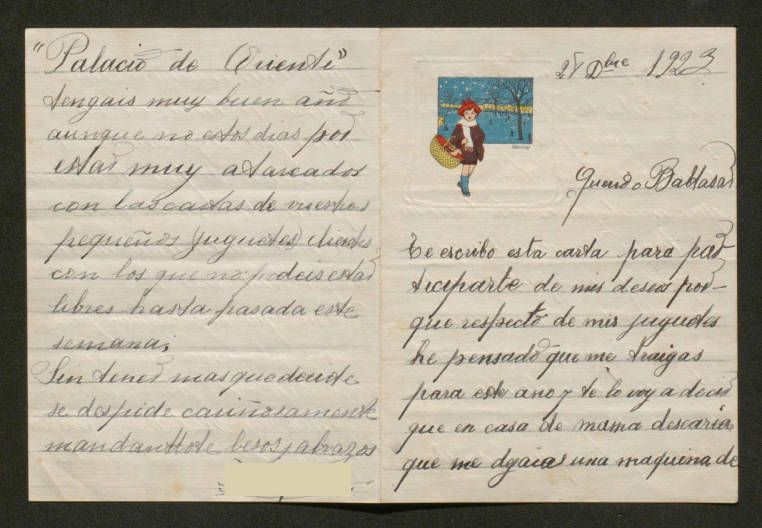 28 Dbre 1923
Querido Baltasar
Te escribo esta carta para par-
ticiparte de mis deseos por-
que respecto de mis juguetes
he pensado que me traigas
para este año y te lo voy a decir
que en casa de mama desearia
que me dejaias una maquina de
"Palacio de Oriente"
tengais muy buen año
aunque no estos dias por
estar muy atareados
con las cartas de vuestros
pequeños (juguetes) clientes
con los que no podeis estar
libres hasta pasada este
semana;
Sin tener mas que decirte
se despide cariñosamente
mandandote besos y abrazos